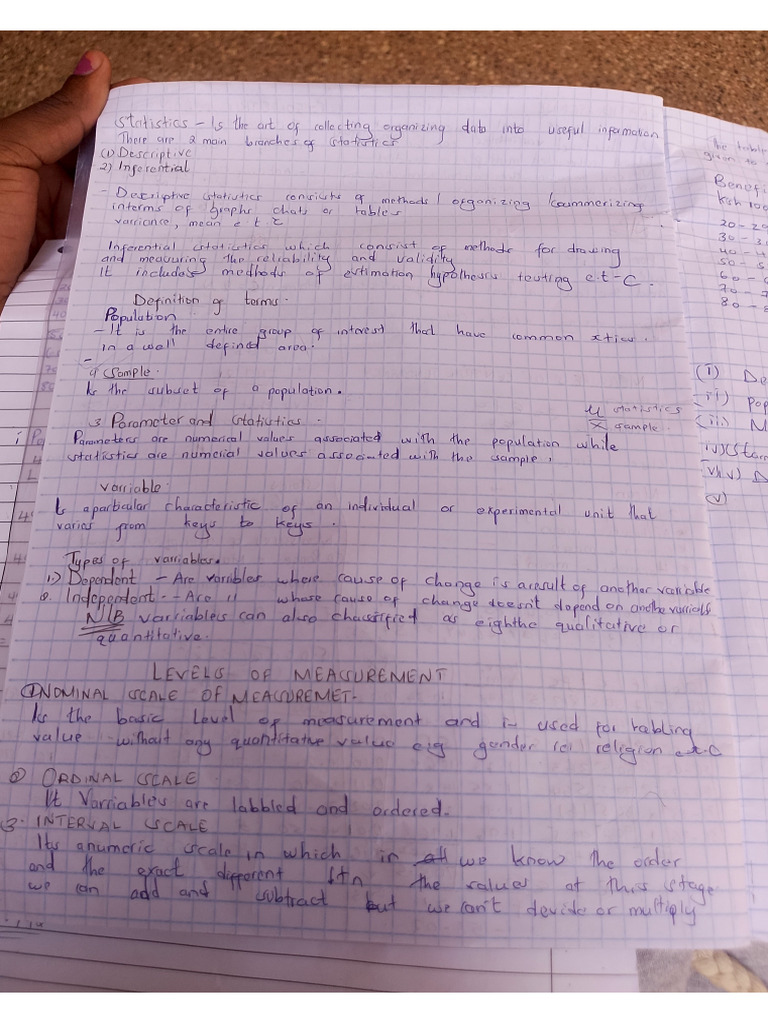 Statistics - Is the art of collecting organizing data into useful information
There are 2 main branches of statistics
(1) Descriptive
2) Inferential
- Descriptive statistics consists of methods/ organizing /summerizing
interms of graphs chats or tables
varriance, mean e.t.c
Inferential statistics which consist of methods for drawing
and measuring the reliability and validity
It includes methods of estimation hypothesis testing e.t-c.
Definition of terms.
Population
- It is the entire group of interest that have common xtics.
in a well defined area.
-
Sample.
Is the subset of a population.
3 Parameter and statistics.
μ statistics
x̄ sample.
Parameters are numerical values associated with the population while
statistics are numerial values associated with the sample.
Varriable.
Is aparticular characteristic of an individual or experimental unit that
varies from keys to keys.
Types of varriables.
1.) Dependent - Are varibles where cause of change is aresult of another variable
Independent - Are 11 whose cause of change doesn't depend on another
N/B varriables can also classified as eighthe qualitative or
quantitative.
LEVELS OF MEASUREMENT
① NOMINAL SCALE OF MEASUREMET.
Is the basic level of measurement and is used for tabling
value without any quantitative value e.g gender religion e.t.c
② ORDINAL SCALE
It Varriables are labbled and ordered.
3. INTERVAL SCALE
Its anumeric scale in which in we know the order
and the exact different btn the values at this stage
we can add and subtract but we can't devide or multiply
given to
Benefi
Ksh 100
20 - 29
30 - 3
40 - 4
50 - 5
60 -
70 - 7
80 - 8
(i) De
ii) Pop
(iii) M
iv) Stan
(v)